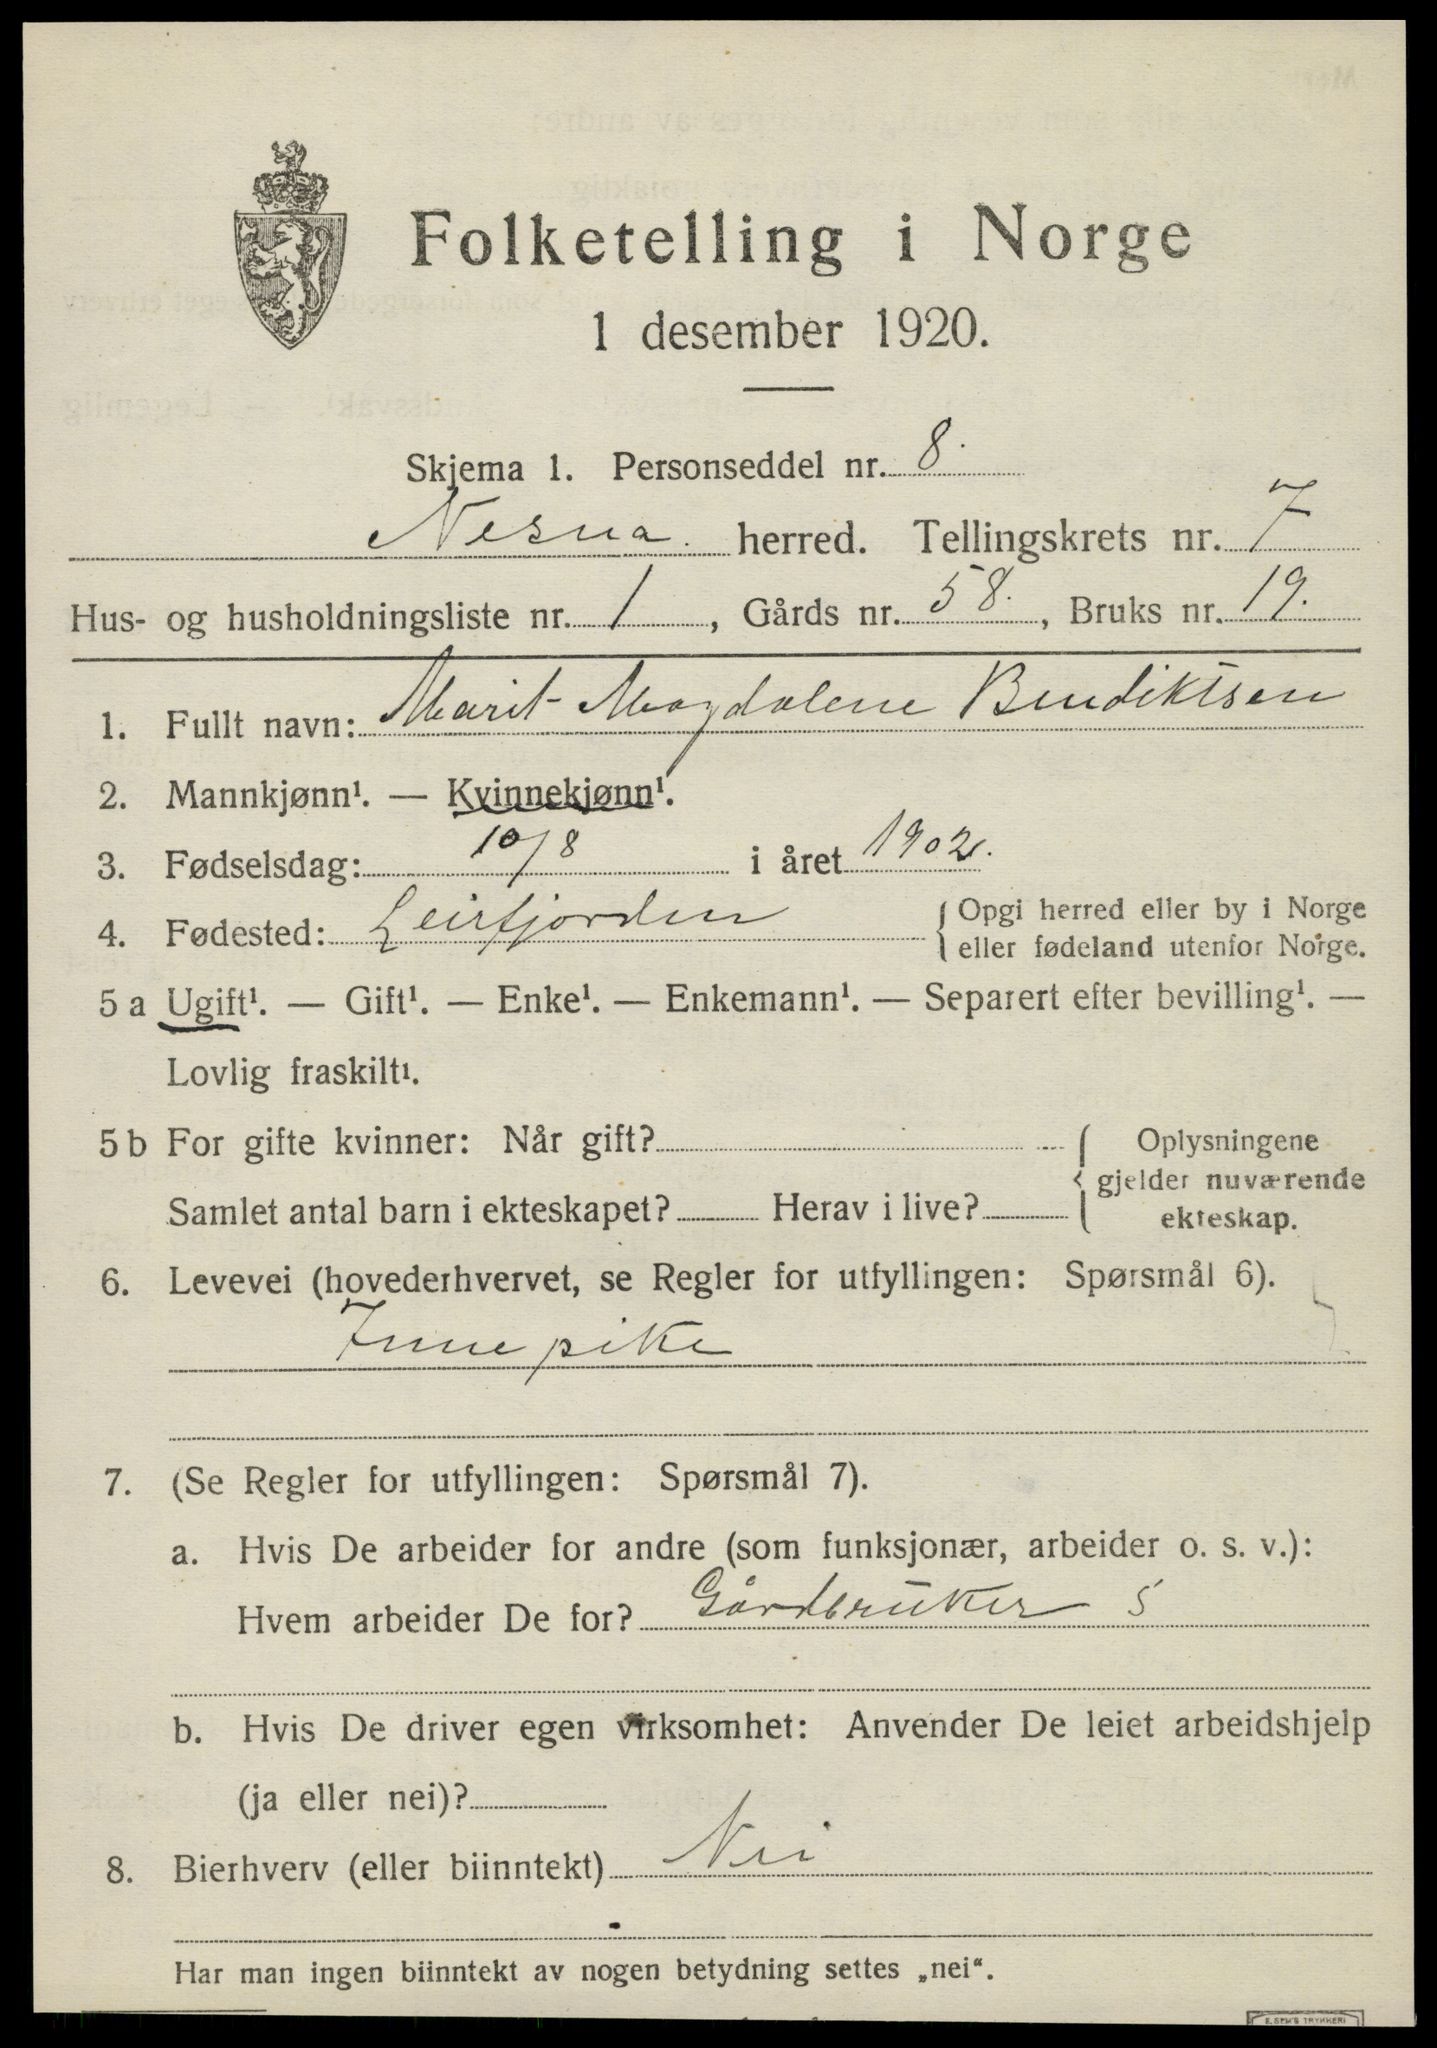 Folketelling i Norge
1 desember 1920.
Skjema 1. Personseddel nr. 8.
Nesna. herred. Tellingskrets nr. 7
Hus- og husholdningsliste nr. 1, Gårds nr. 58., Bruks nr. 19.
1. Fullt navn: Marit Magdalene Bendiktsen
2. Mannkjønn¹. — Kvinnekjønn¹.
3. Fødselsdag: 10/8 i året 1902.
4. Fødested: Leirfjorden {Opgi herred eller by i Norge
eller fødeland utenfor Norge.
5 a Ugift¹. — Gift¹. — Enke¹. — Enkemann¹. — Separert efter bevilling¹. —
Lovlig fraskilt¹.
5 b For gifte kvinner: Når gift? { Oplysningene
gjelder nuværende
Samlet antal barn i ekteskapet? Herav i live?
ekteskap.
6. Levevei (hovederhvervet, se Regler for utfyllingen: Spørsmål 6).
Innepike
7. (Se Regler for utfyllingen: Spørsmål 7).
a. Hvis De arbeider for andre (som funksjonær, arbeider o. s. v.):
Hvem arbeider De for? Gårdbruker s
b. Hvis De driver egen virksomhet: Anvender De leiet arbeidshjelp
(ja eller nei)?
8. Bierhverv (eller biinntekt) Nei
Har man ingen biinntekt av nogen betydning settes „nei“.
E. SEM'S TRYKKERI